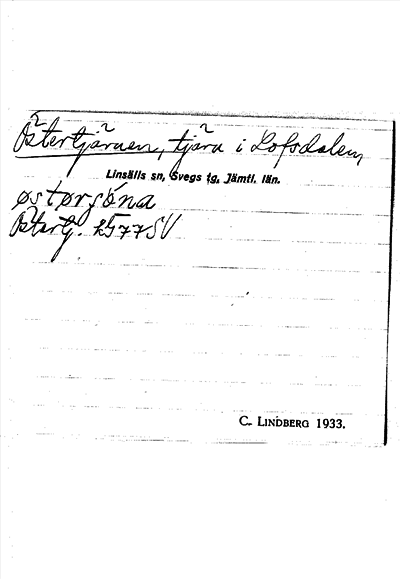 Östertjärnen, tjärn i Lofsdalen
Linsälls sn, Svegs tg, Jämtl. län.
østørs̩o̩na
Östertj. 2577 SV
C. LINDBERG 1933.